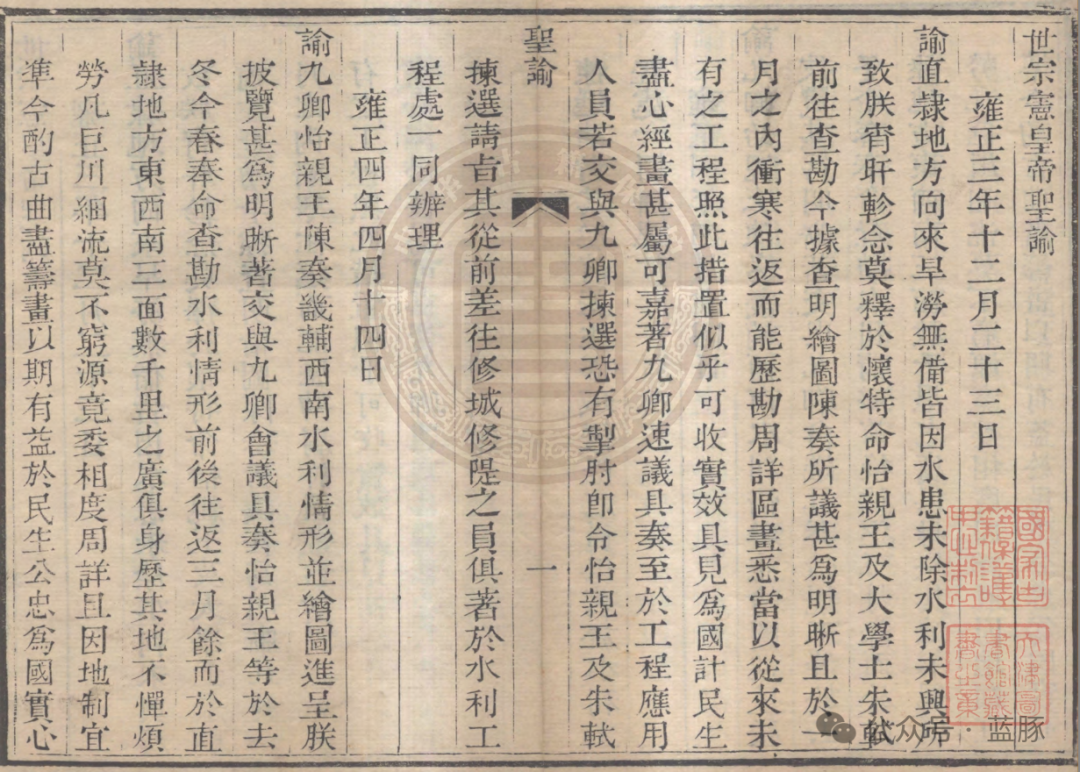 世宗憲皇帝聖諭
雍正三年十二月二十三日
諭直隷地方向來旱澇無備皆因水患未除水利未興所
致朕宵旰軫念莫釋於懷特命怡親王及大學士朱軾
前往查勘今據查明繪圖陳奏所議甚爲明晰且於一
月之內衝寒往返而能歷勘周詳區畫悉當以從來未
有之工程照此措置似乎可收實效具見爲國計民生
盡心經畫甚屬可嘉著九卿速議具奏至於工程應用
人員若交與九卿揀選恐有掣肘卽令怡親王及朱軾
聖諭
一
揀選請旨其從前差往修城修隄之員俱著於水利工
程處一同辦理
雍正四年四月十四日
諭九卿怡親王陳奏畿輔西南水利情形並繪圖進呈朕
披覽甚爲明晰著交與九卿會議具奏怡親王等於去
冬今春奉命查勘水利情形前後往返三月餘而於直
隷地方東西南三面數千里之廣俱身歷其地不憚煩
勞凡巨川細流莫不窮源竟委相度周詳且因地制宜
準今酌古曲盡籌畫以期有益於民生公忠爲國實心
國家古
籍保護
天津圖
書館藏
書之章
公众号 · 蓝豚